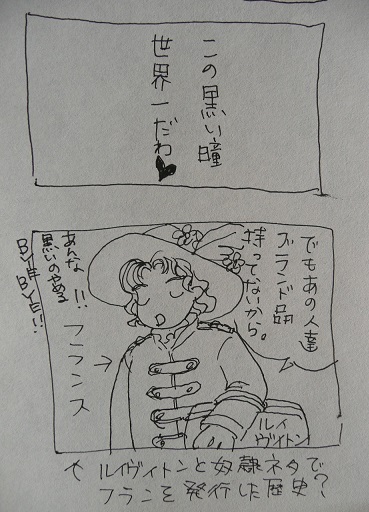 この黒い瞳
世界一だわ♥
でもあの人達
ブランド品
持ってないから。
あんな!!
黒いのやめる
BYE BYE!!
フランス
→
ルイ
ヴィトン
ルイヴィトンと奴隷ネタで
フランを発行した歴史?